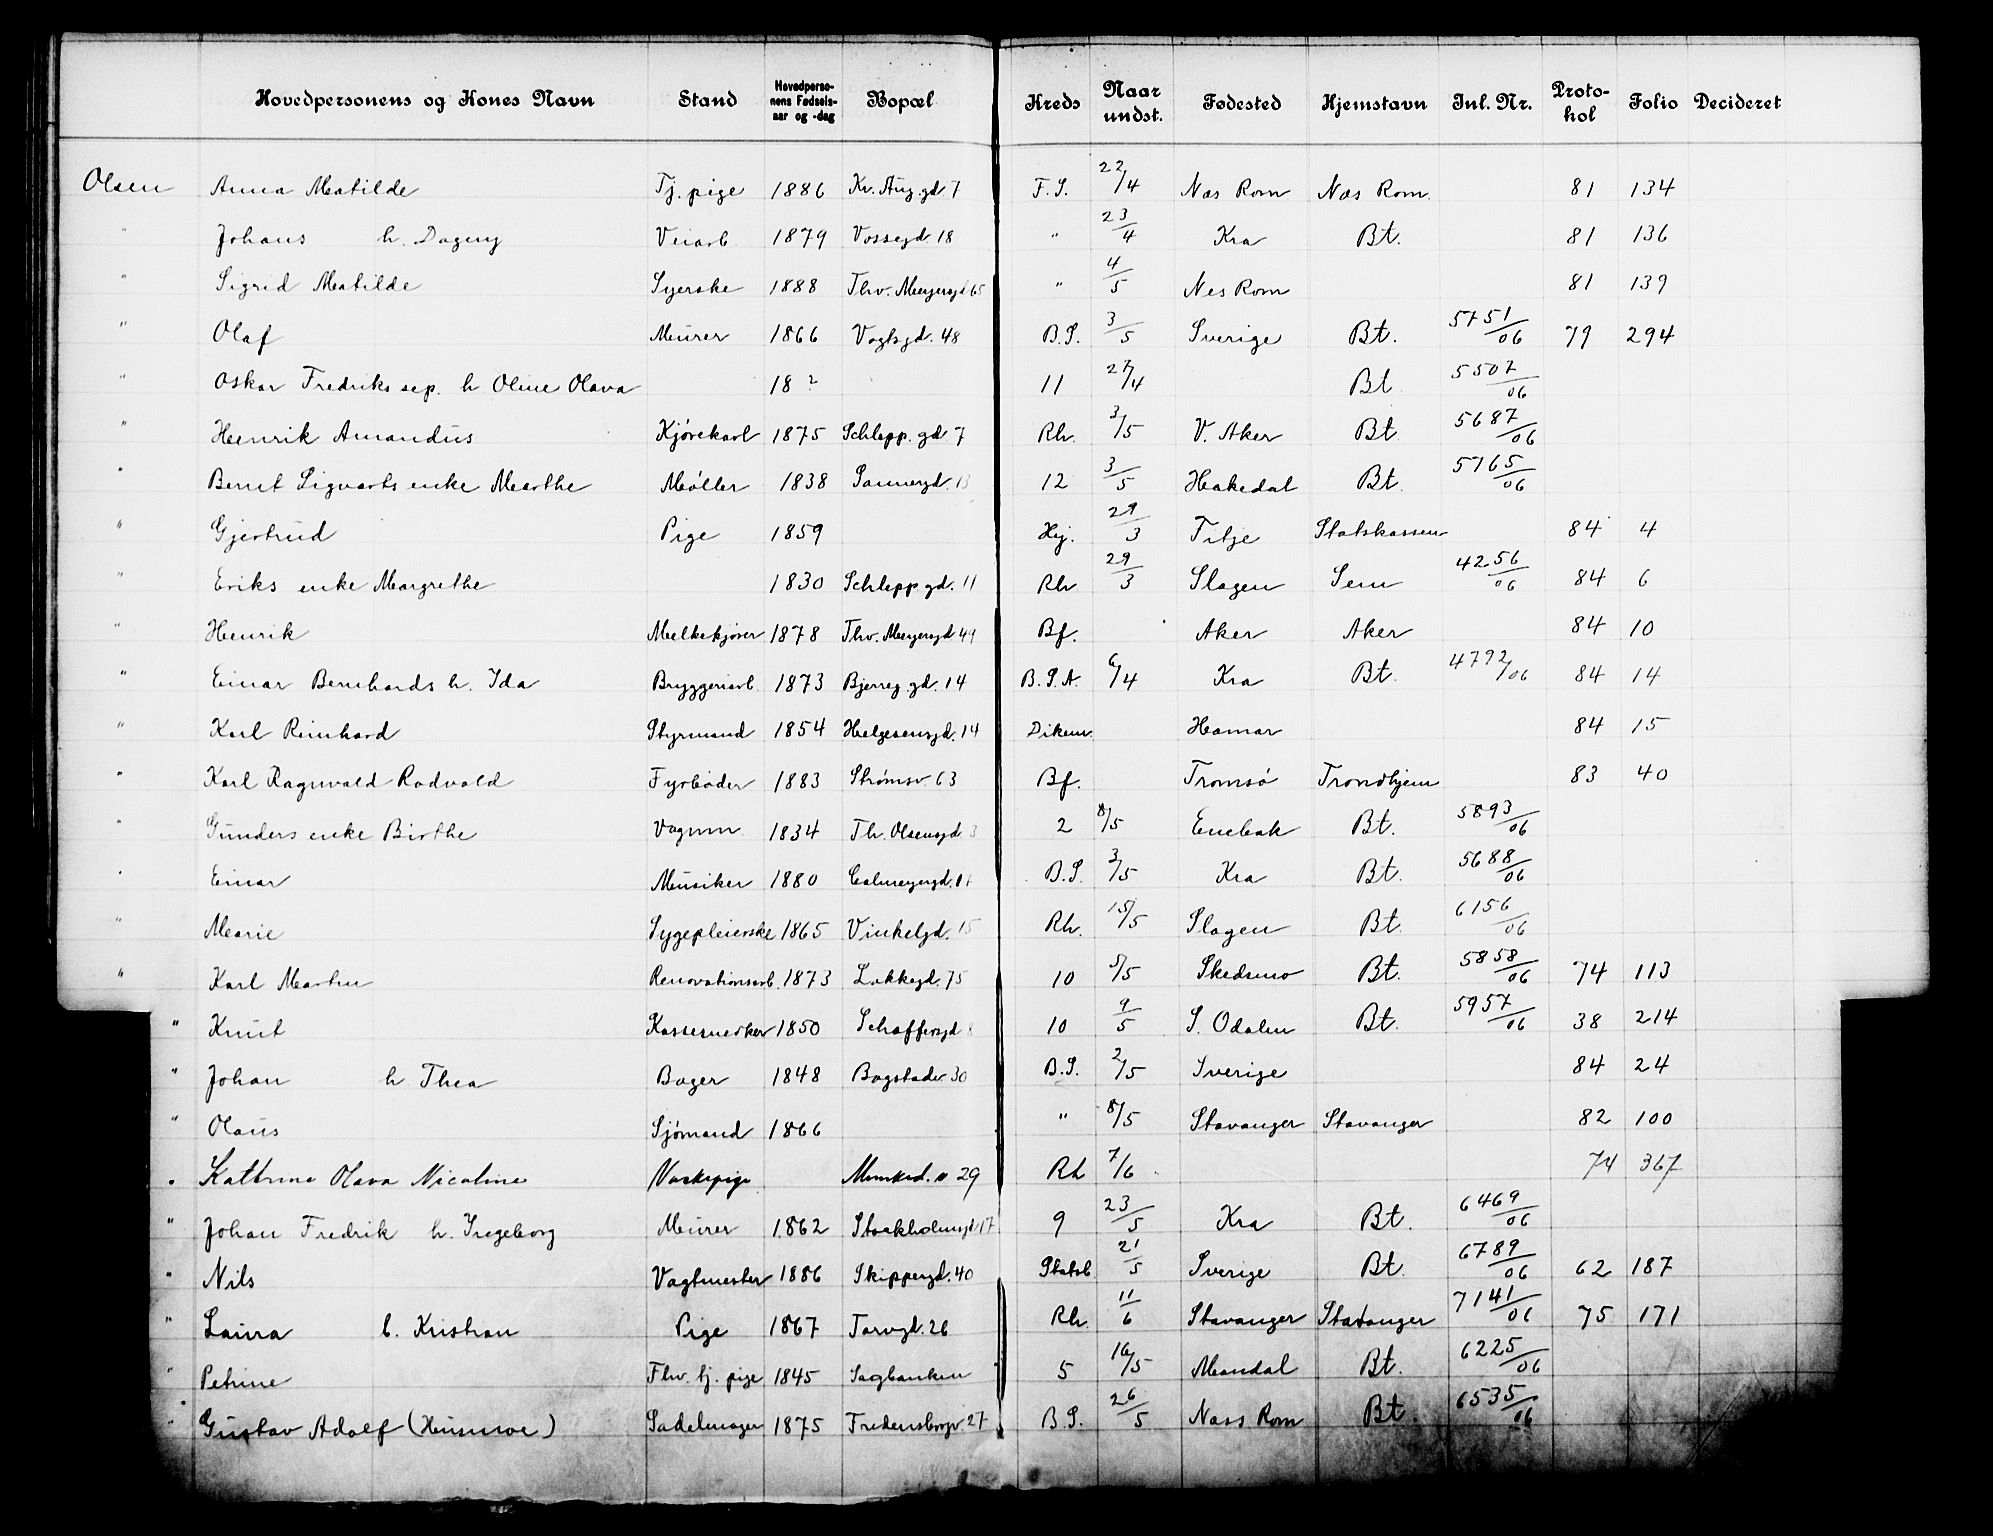 Hovedpersonens og Kones Navn Stand Hovedperso-nens Fødsels-aar og -dag Bopæl Kreds Naar undst. Fødested Hjemstavn Inl. Nr. Proto-kol Folio Decideret
Olsen Anna Matilde Tj. pige 1886 Kr. Aug. gd. 7 F.S. 22/4 Næs Rom Næs Rom. 81 134
" Johans h. Dagny Veiarb. 1879 Vossegd. 18 " 23/4 Kra Bt. 81 136
" Sigrid Matilde Syerske 1888 Thv. Meyersgd 65 " 4/5 Nes Rom 81 139
" Olaf Murer 1866 Vogtsgd. 48 B.S. 3/5 Sverige Bt. 5751/06 79 294
" Oskar Fredriks sep. h. Oline Olava 18 ? 11 27/4 Bt 5507/06
" Henrik Amandus Kjørekarl 1875 Schlepp. gd 7 Rh. 3/5 V. Aker Bt 5687/06
" Bernt Sigvarts enke Marthe Møller 1838 Sannergd. 13 12 3/5 Hakedal Bt. 5765/06
" Gjertrud Pige 1859 Hj. 29/3 Fitje Statskassen 84 4
" Eriks enke Margrethe 1830 Schlepp gd. 11 Rh 29/3 Slagen Sem 4256/06 84 6
" Henrik Melkekjører 1878 Thv. Meyersgd 49 Bf. Aker Aker 84 10
" Einar Bernhards h. Ida Bryggeriarb. 1873 Bjerreg. gd. 14 B.S.A. 6/4 Kra Bt. 4792/06 84 14
" Karl Reinhard Styrmand 1854 Helgesensgd. 14 Dikem. Hamar 84 15
" Karl Ragnvald Rodvald Fyrbøder 1883 Strømsv. 63 Bf. Tromsø Trondhjem 83 40
" Gunders enke Birthe Vognm. 1834 Th. Olsensgd 3 2 8/5 Enebak Bt. 5893/06
" Einar Musiker 1880 Calmeyergd. 11 B.S. 3/5 Kra Bt. 5688/06
" Marie Sygepleierske 1865 Vinkelgd. 15 Rh. 15/5 Slagen Bt. 6156/06
" Karl Martin Renovationsarb. 1873 Lakkegd. 75 10 5/5 Skedsmo Bt. 5858/06 74 113
" Knut Kassesnedker 1850 Schaffersgd 8 10 9/5 S. Odalen Bt. 5957/06 38 214
" Johan h. Thea Bager 1848 Bogstadv. 30 B.S. 2/5 Sverige 84 24
" Olaus Sjømand 1866 " 8/5 Stavanger Stavanger 82 100
" Kathrine Olava Nicoline Vaskepige 29 Rh 7/6 74 367
" Johan Fredrik h. Ingeborg Murer 1862 Stockholmsgd 17 9 23/5 Kra Bt. 6469/06
" Nils Vagtmester 1886 Skippergd. 40 Statsb 21/5 Sverige Bt. 6789/06 62 187
" Laura b. Kristian Pige 1867 Torvgd. 26 Rh. 11/6 Stavanger Stavanger 7141/06 75 171
" Petrine Fhv. tj. pige 1845 Sagbanken 5 16/5 Mandal Bt. 6225/06
" Gustav Adolf (Husmoe) Sadelmager 1875 Fredensborgv. 27 B.S. 26/5 Næss Rom Bt. 6535/06